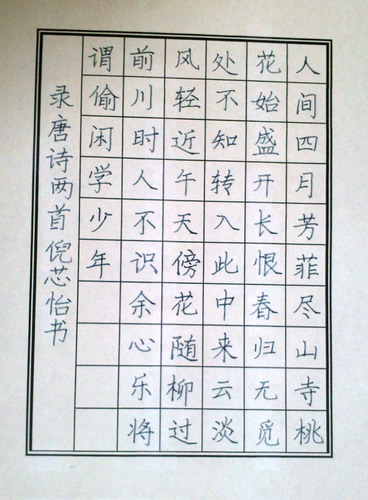 人间四月芳菲尽山寺桃
花始盛开长恨春归无觅
处不知转入此中来云淡
风轻近午天傍花随柳过
前川时人不识余心乐将
谓偷闲学少年
录唐诗两首倪芯怡书